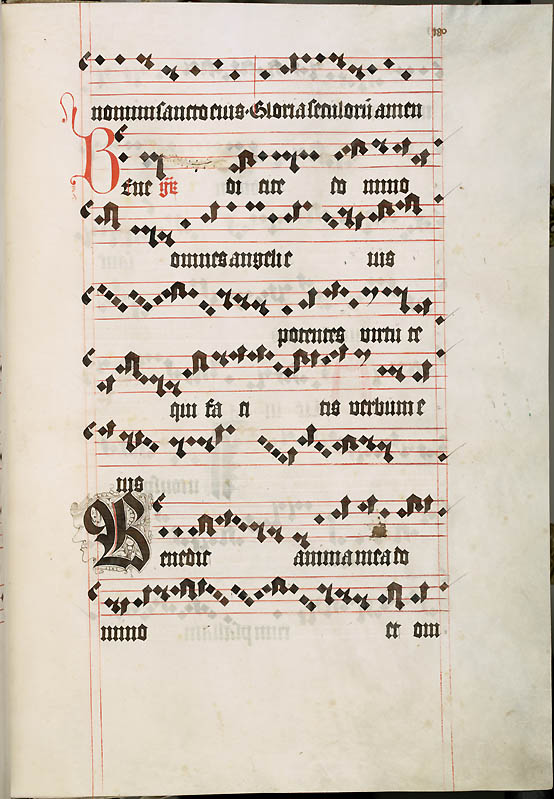 180
nomini sancto eius · Gloria seculorū amen
Bene gr̄ di cite do mino
omnes angeli e ius
potentes virtu te
qui fa ci tis verbum e
ius
Benedic anima mea do
mino et om